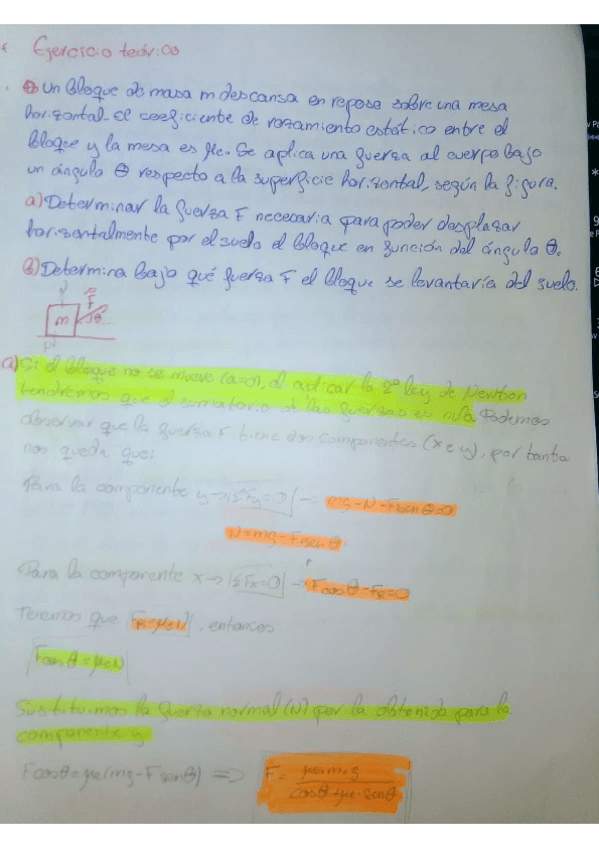 Ejercicio teórico
Un bloque de masa m descansa en reposo sobre una mesa
horizontal. El coeficiente de rozamiento estático entre el
bloque y la mesa es μe. Se aplica una fuerza al cuerpo bajo
un ángulo θ respecto a la superficie horizontal, según la figura.
a) Determinar la fuerza F necesaria para poder desplazar
horizontalmente por el suelo el bloque en función del ángulo θ.
b) Determina bajo qué fuerza F el bloque se levantaría del suelo.
F
m θ
a) Si el bloque no se mueve (a=0), al aplicar la 2º ley de Newton
tendremos que el sumatorio de las fuerzas es nula. Podemos
observar que la fuerza F tiene dos componentes (x e y), por tanto
nos queda que:
Para la componente y → |ΣFy=0| → mg-N-Fsenθ=0
N=mg-Fsenθ
Para la componente x → |ΣFx=0| → Fcosθ-FR=0
Tenemos que FR=μeN, entonces
Fcosθ=μeN
Sustituimos la fuerza normal (N) por la obtenida para la
componente y
Fcosθ=μe(mg-Fsenθ) => F= μe·m·g / cosθ+μe·senθ